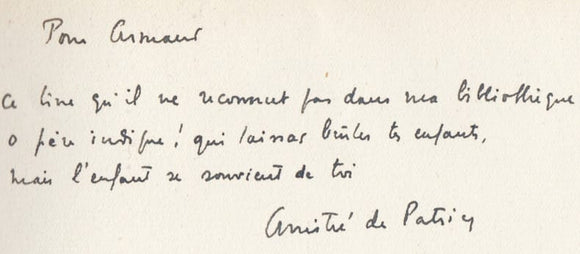 Pour Armand
ce livre qu'il ne reconnut pas dans ma bibliothèque
O père indigne! qui laissas brûler tes enfants,
mais l'enfant se souvient de toi
Amitié de Patrick